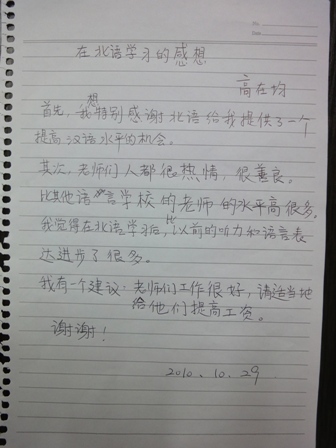 在北语学习的感想
高在均
首先，我想特别感谢北语给我提供了一个
提高汉语水平的机会。
其次，老师们人都很热情，很善良。
比其他语言学校的老师的水平高很多。
我觉得在北语学习后，比以前的听力和语言表
达进步了很多。
我有一个建议：老师们工作很好，请适当地
给他们提高工资。
谢谢！
2010.10.29